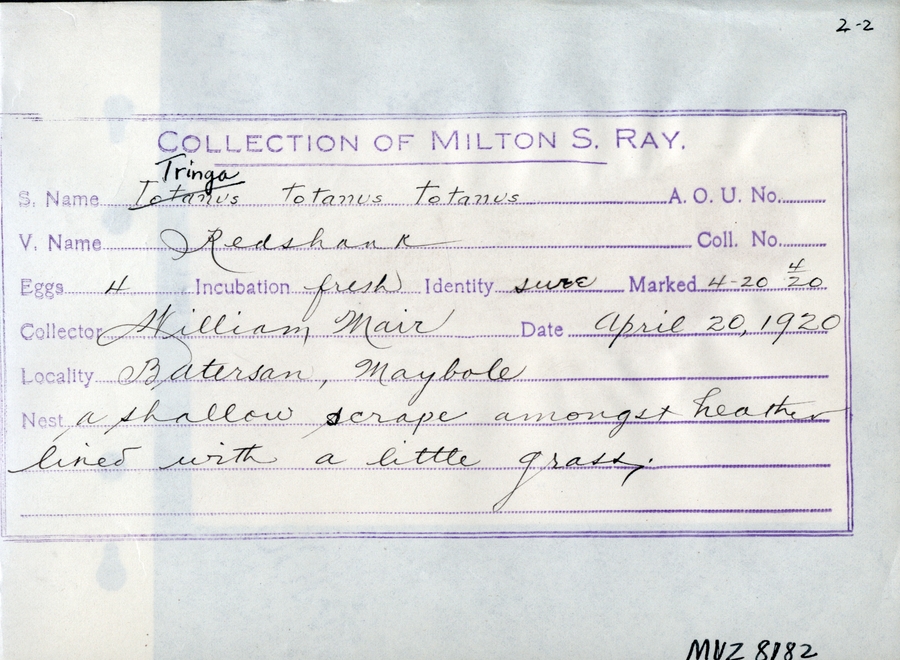 2-2
COLLECTION OF MILTON S. RAY.
Tringa
S. Name Totanus Totanus Totanus A. O. U. No.
V. Name Redshank Coll. No.
Eggs 4 Incubation fresh Identity sure Marked 4-20 4/20
Collector William Mair Date April 20, 1920
Locality Batersan, Maybole
Nest a shallow scrape amongst heather
lined with a little grass.
MVZ 8182